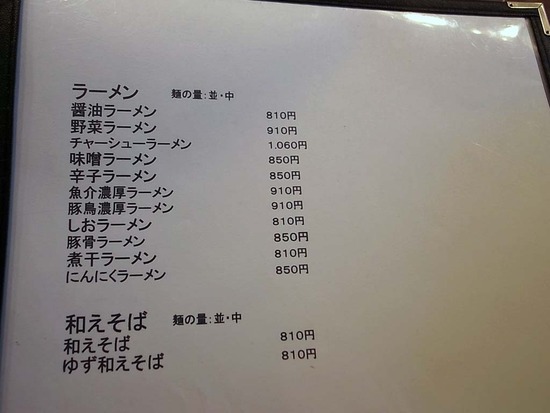 ラーメン 麺の量:並・中
醤油ラーメン 810円
野菜ラーメン 910円
チャーシューラーメン 1.060円
味噌ラーメン 850円
辛子ラーメン 850円
魚介濃厚ラーメン 910円
豚鳥濃厚ラーメン 910円
しおラーメン 810円
豚骨ラーメン 850円
煮干ラーメン 810円
にんにくラーメン 850円
和えそば 麺の量:並・中
和えそば 810円
ゆず和えそば 810円